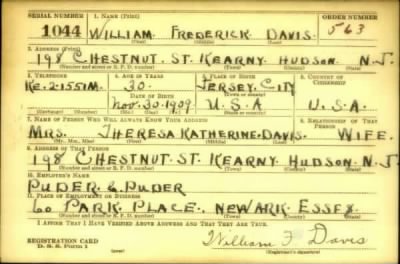 SERIAL NUMBER 1. NAME (Print) ORDER NUMBER
1044 WILLIAM FREDERICK DAVIS 563
(First) (Middle) (Last)
2. ADDRESS (Print)
198 CHESTNUT. ST. KEARNY. HUDSON. N.J.
(Number and street or R. F. D. number) (Town) (County) (State)
3. TELEPHONE 4. AGE IN YEARS 5. PLACE OF BIRTH 6. COUNTRY OF CITIZENSHIP
KE. 2-1551M. 30. JERSEY. CITY
DATE OF BIRTH (Town or county)
Nov. 30. 1909. U.S.A U.S.A.
(Exchange) (Number) (Mo.) (Day) (Yr.) (State or country)
7. NAME OF PERSON WHO WILL ALWAYS KNOW YOUR ADDRESS 8. RELATIONSHIP OF THAT PERSON
MRS. THERESA KATHERINE. DAVIS. WIFE.
(Mr., Mrs., Miss) (First) (Middle) (Last)
9. ADDRESS OF THAT PERSON
198 CHESTNUT. ST. KEARNY. HUDSON. N.J.
(Number and street or R. F. D. number) (Town) (County) (State)
10. EMPLOYER'S NAME
PUDER & PUDER
11. PLACE OF EMPLOYMENT OR BUSINESS
60 PARK. PLACE. NEWARK ESSEX.
(Number and street or R. F. D. number) (Town) (County) (State)
I AFFIRM THAT I HAVE VERIFIED ABOVE ANSWERS AND THAT THEY ARE TRUE.
REGISTRATION CARD
D. S. S. Form 1
William F Davis
(Registrant's signature)